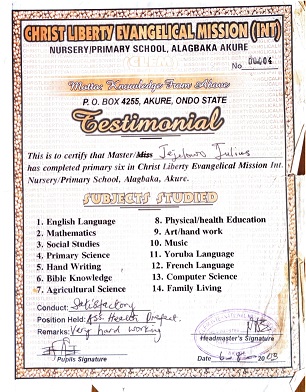 CHRIST LIBERTY EVANGELICAL MISSION (INT)
NURSERY/PRIMARY SCHOOL, ALAGBAKA AKURE
No 00404
Motto: Knowledge From Above
P. O. BOX 4255, AKURE, ONDO STATE
Testimonial
This is to certify that Master/Miss Julius
has completed primary six in Christ Liberty Evangelical Mission Int.
Nursery/Primary School, Alagbaka, Akure.
SUBJECTS STUDIED
1. English Language
2. Mathematics
3. Social Studies
4. Primary Science
5. Hand Writing
6. Bible Knowledge
7. Agricultural Science
8. Physical/health Education
9. Art/hand work
10. Music
11. Yoruba Language
12. French Language
13. Computer Science
14. Family Living
Conduct: Satisfactory
Position Held: Ass Health Prefect
Remarks: Very hard working
Pupils Signature
Headmaster's Signature
Date